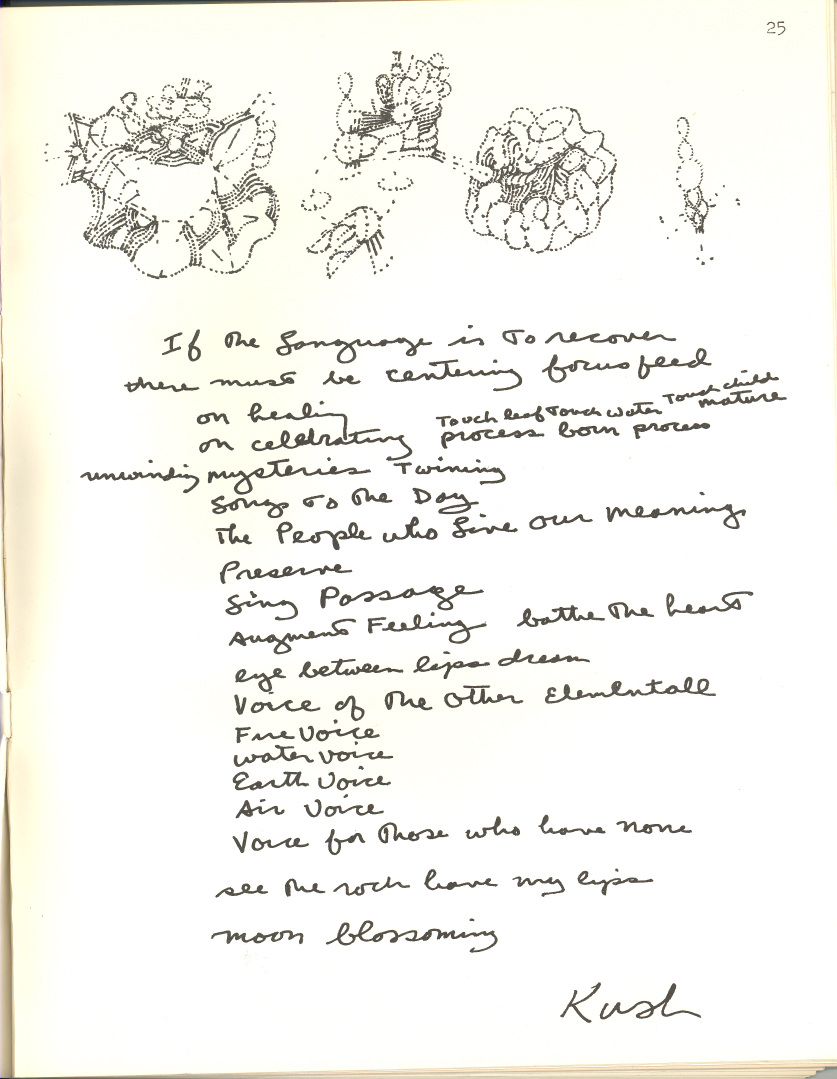 25
If The Language is To recover
there must be centering focus feed
on healing
Touch leaf Touch water Touch child
on celebrating process born process mature
unwinding mysteries Twining
Songs To The Day
The People who Live our meanings
Preserve
Sing Passage
Augment Feeling bathe The heart
eye between lips dream
Voice of The Other Elementall
Fire Voice
water voice
Earth Voice
Air Voice
Voice for Those who have none
see The rock leave my lips
moon blossoming
Kush